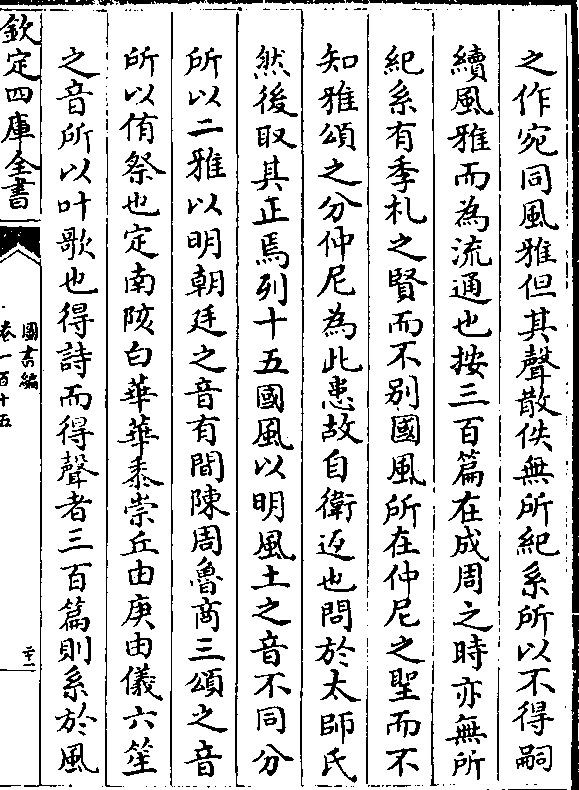 之作宛同風雅但其聲散佚無所紀系所以不得嗣
續風雅而為流通也按三百篇在成周之時亦無所
紀系有季札之賢而不别國風所在仲尼之聖而不
知雅頌之分仲尼為此患故自衛返也問於太師氏
然後取其正焉列十五國風以明風土之音不同分
所以二雅以明朝廷之音有間陳周魯商三頌之音
所以侑祭也定南陔白華華黍崇丘由庚由儀六笙
之音所以叶歌也得詩而得聲者三百篇則系於風
欽定四庫全書
圖書編
卷一百十五